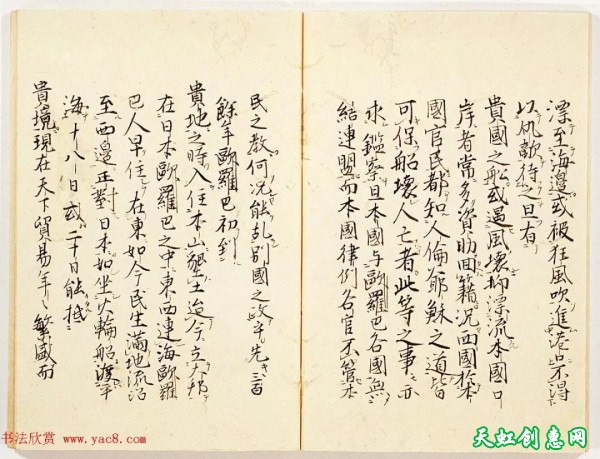 漂至海邊或被狂風吹進港不得
以仇敵待之且有
貴國之舩或遇風壞抑漂流本國口
岸者常多資助回籍況四國於本
國官民都知人倫耶穌之道皆
可保船壞人亡者此等之事亦
求鑑察且本國与歐羅巴各國無
結連盟而本國律例各官不管本
民之教何況能乱別國之政乎先三百
餘年歐羅巴初到
貴地之時入住本山墾土迨今立大邦
在日本歐羅巴之中東西連海歐羅
巴人早住在東如今民生滿地流沿
至西邊正對日本如坐火輪船渡平
海十八日或二十日能抵
貴境現在天下貿易年〻繁盛耐
书法欣赏 www.yac8.com
天虹创惠网